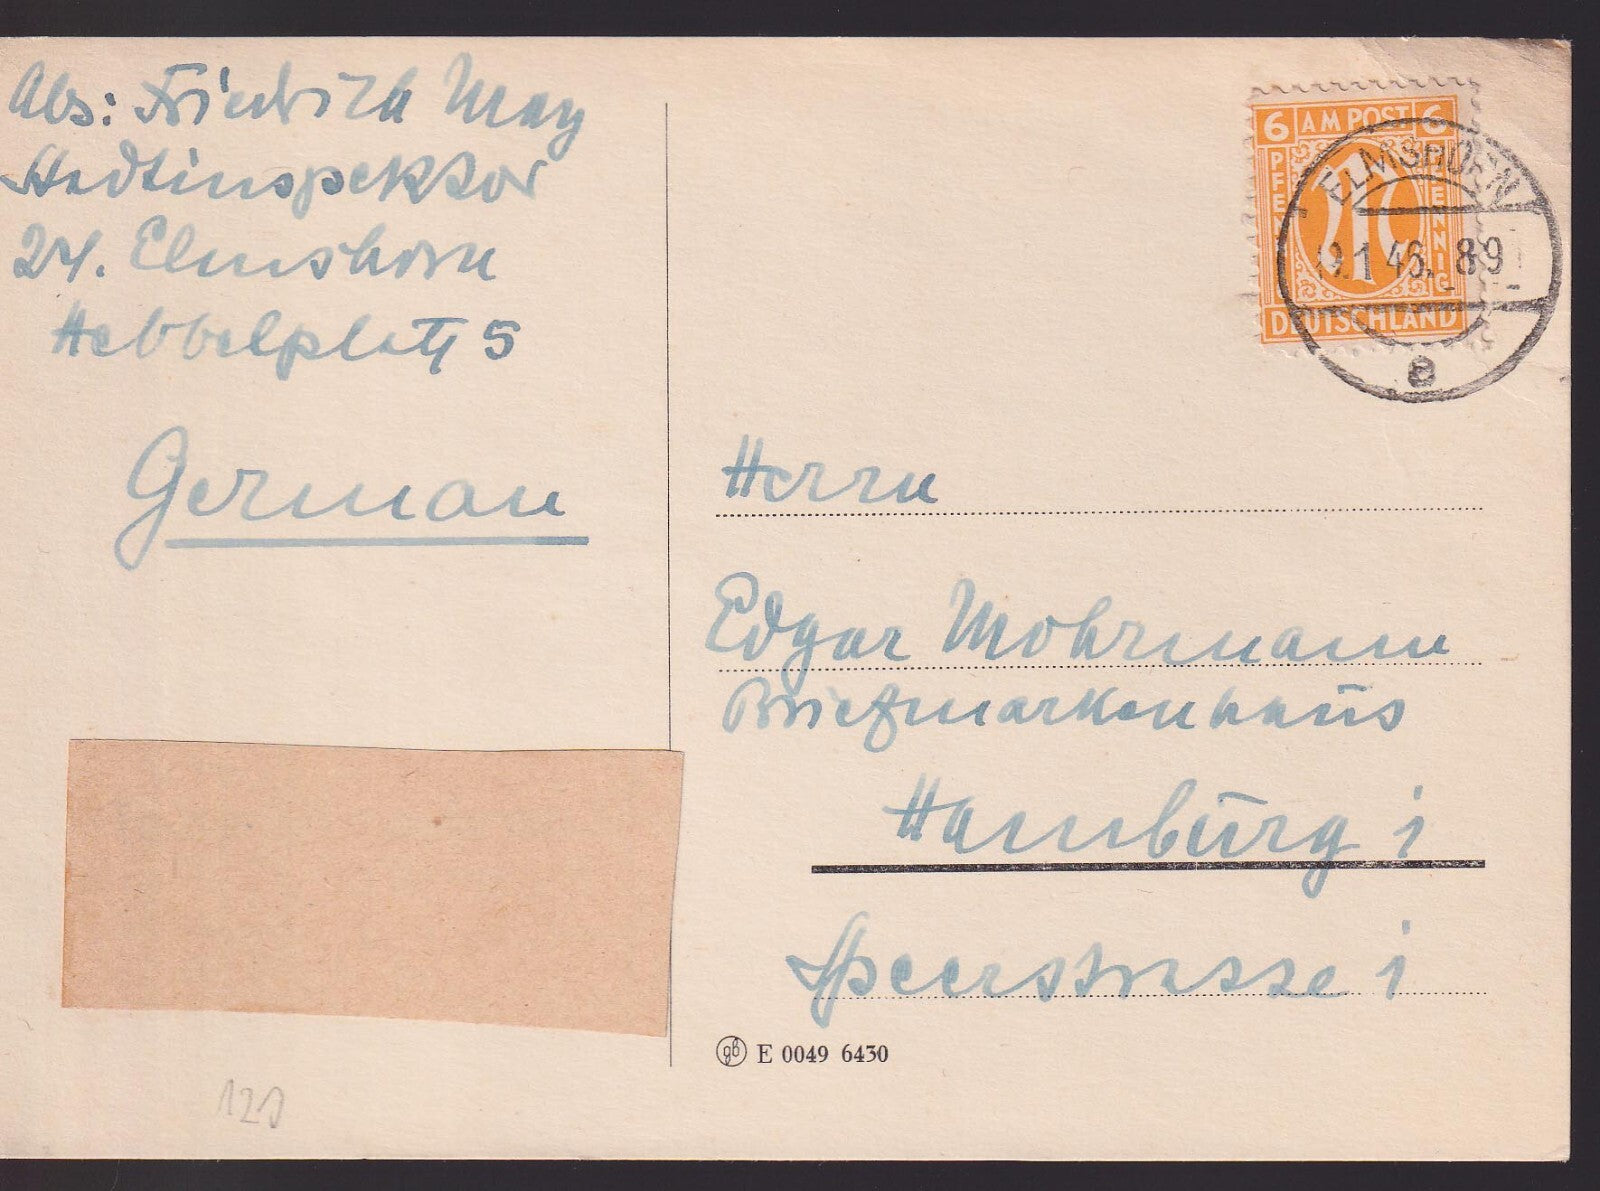 Abs: Friedrich May
Stadtinspektor
24. Elmshorn
Hebbelplatz 5
German
6 AM POST 6
PFENNIG
PFENNIG
DEUTSCHLAND
ELMSHORN
.1.46. 8-9
e
Herrn
Edgar Mohrmann
Briefmarkenhaus
Hamburg 1
Speerstrasse 1
gb E 0049 6430